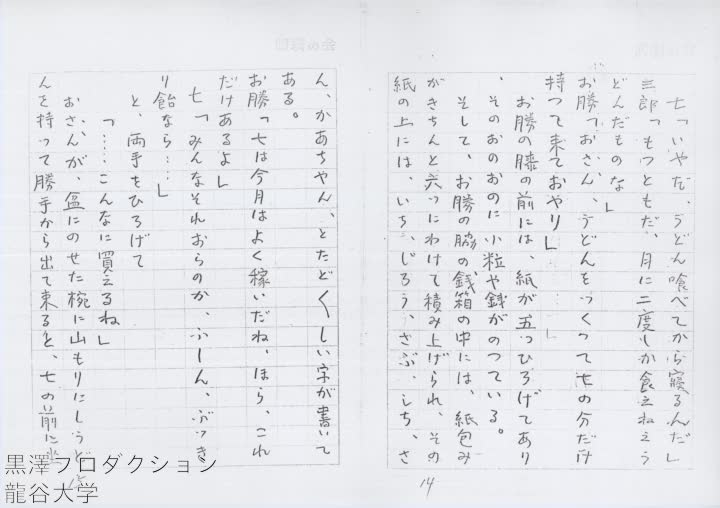 七「いやだ、うどん喰べてから寝るんだ」
三郎「もつともだ、月に二度しか食えねえう
どんだものな」
お勝「おさん、うどんをつくつて七の分だけ
持つて来ておやり」
お勝の膝の前には、紙が五つひろげてあり
、そのおのおのに小粒や銭がのつている。
そして、お勝の脇の銭箱の中には、紙包み
がきちんと六つにわけて積み上げられ、その
紙の上には、いち、じろう、さぶ、しち、さ
14
ん、かあちやん、とたどくしい字が書いて
ある。
お勝「七は今月はよく稼いだね、ほら、これ
だけあるよ」
七「みんなそれおらのか、ふしん、ぶつき
り飴なら……」
と、両手をひろげて
「……こんなに買えるね」
おさんが、盆にのせた椀に山もりにしうど
んを持って勝手から出て来ると、七の前に
15
黒澤プロダクション
龍谷大学